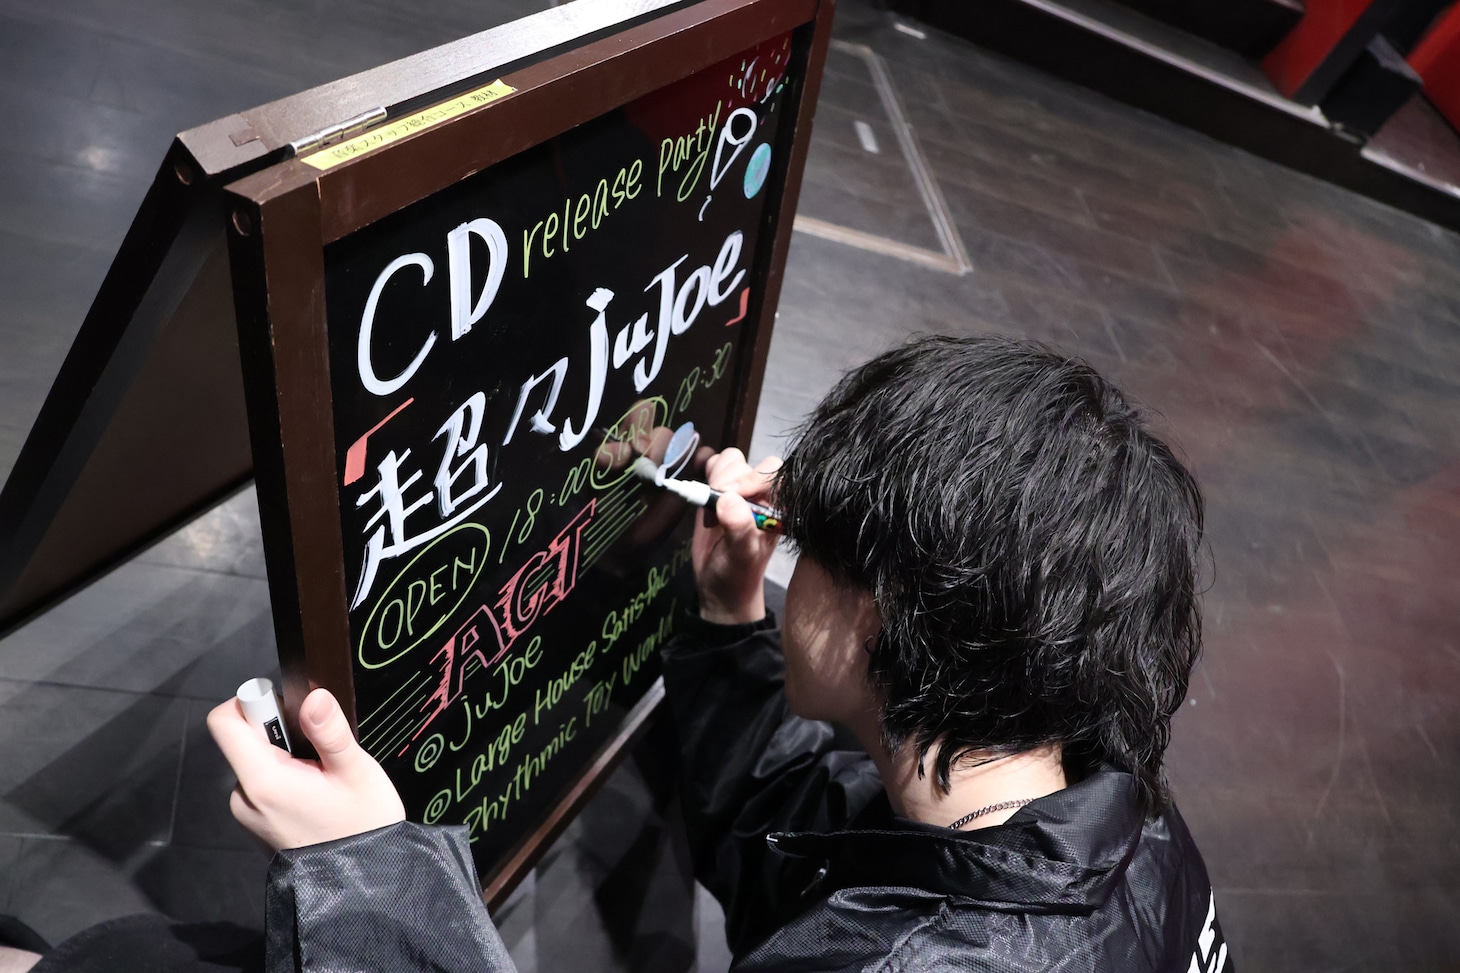 音楽スタッフ総合コース 教材
CD release party
「超々juJoe」
OPEN/18:00 START/18:30
ACT
◎juJoe
◎Large House Satisfaction
Rhythmic Toy World